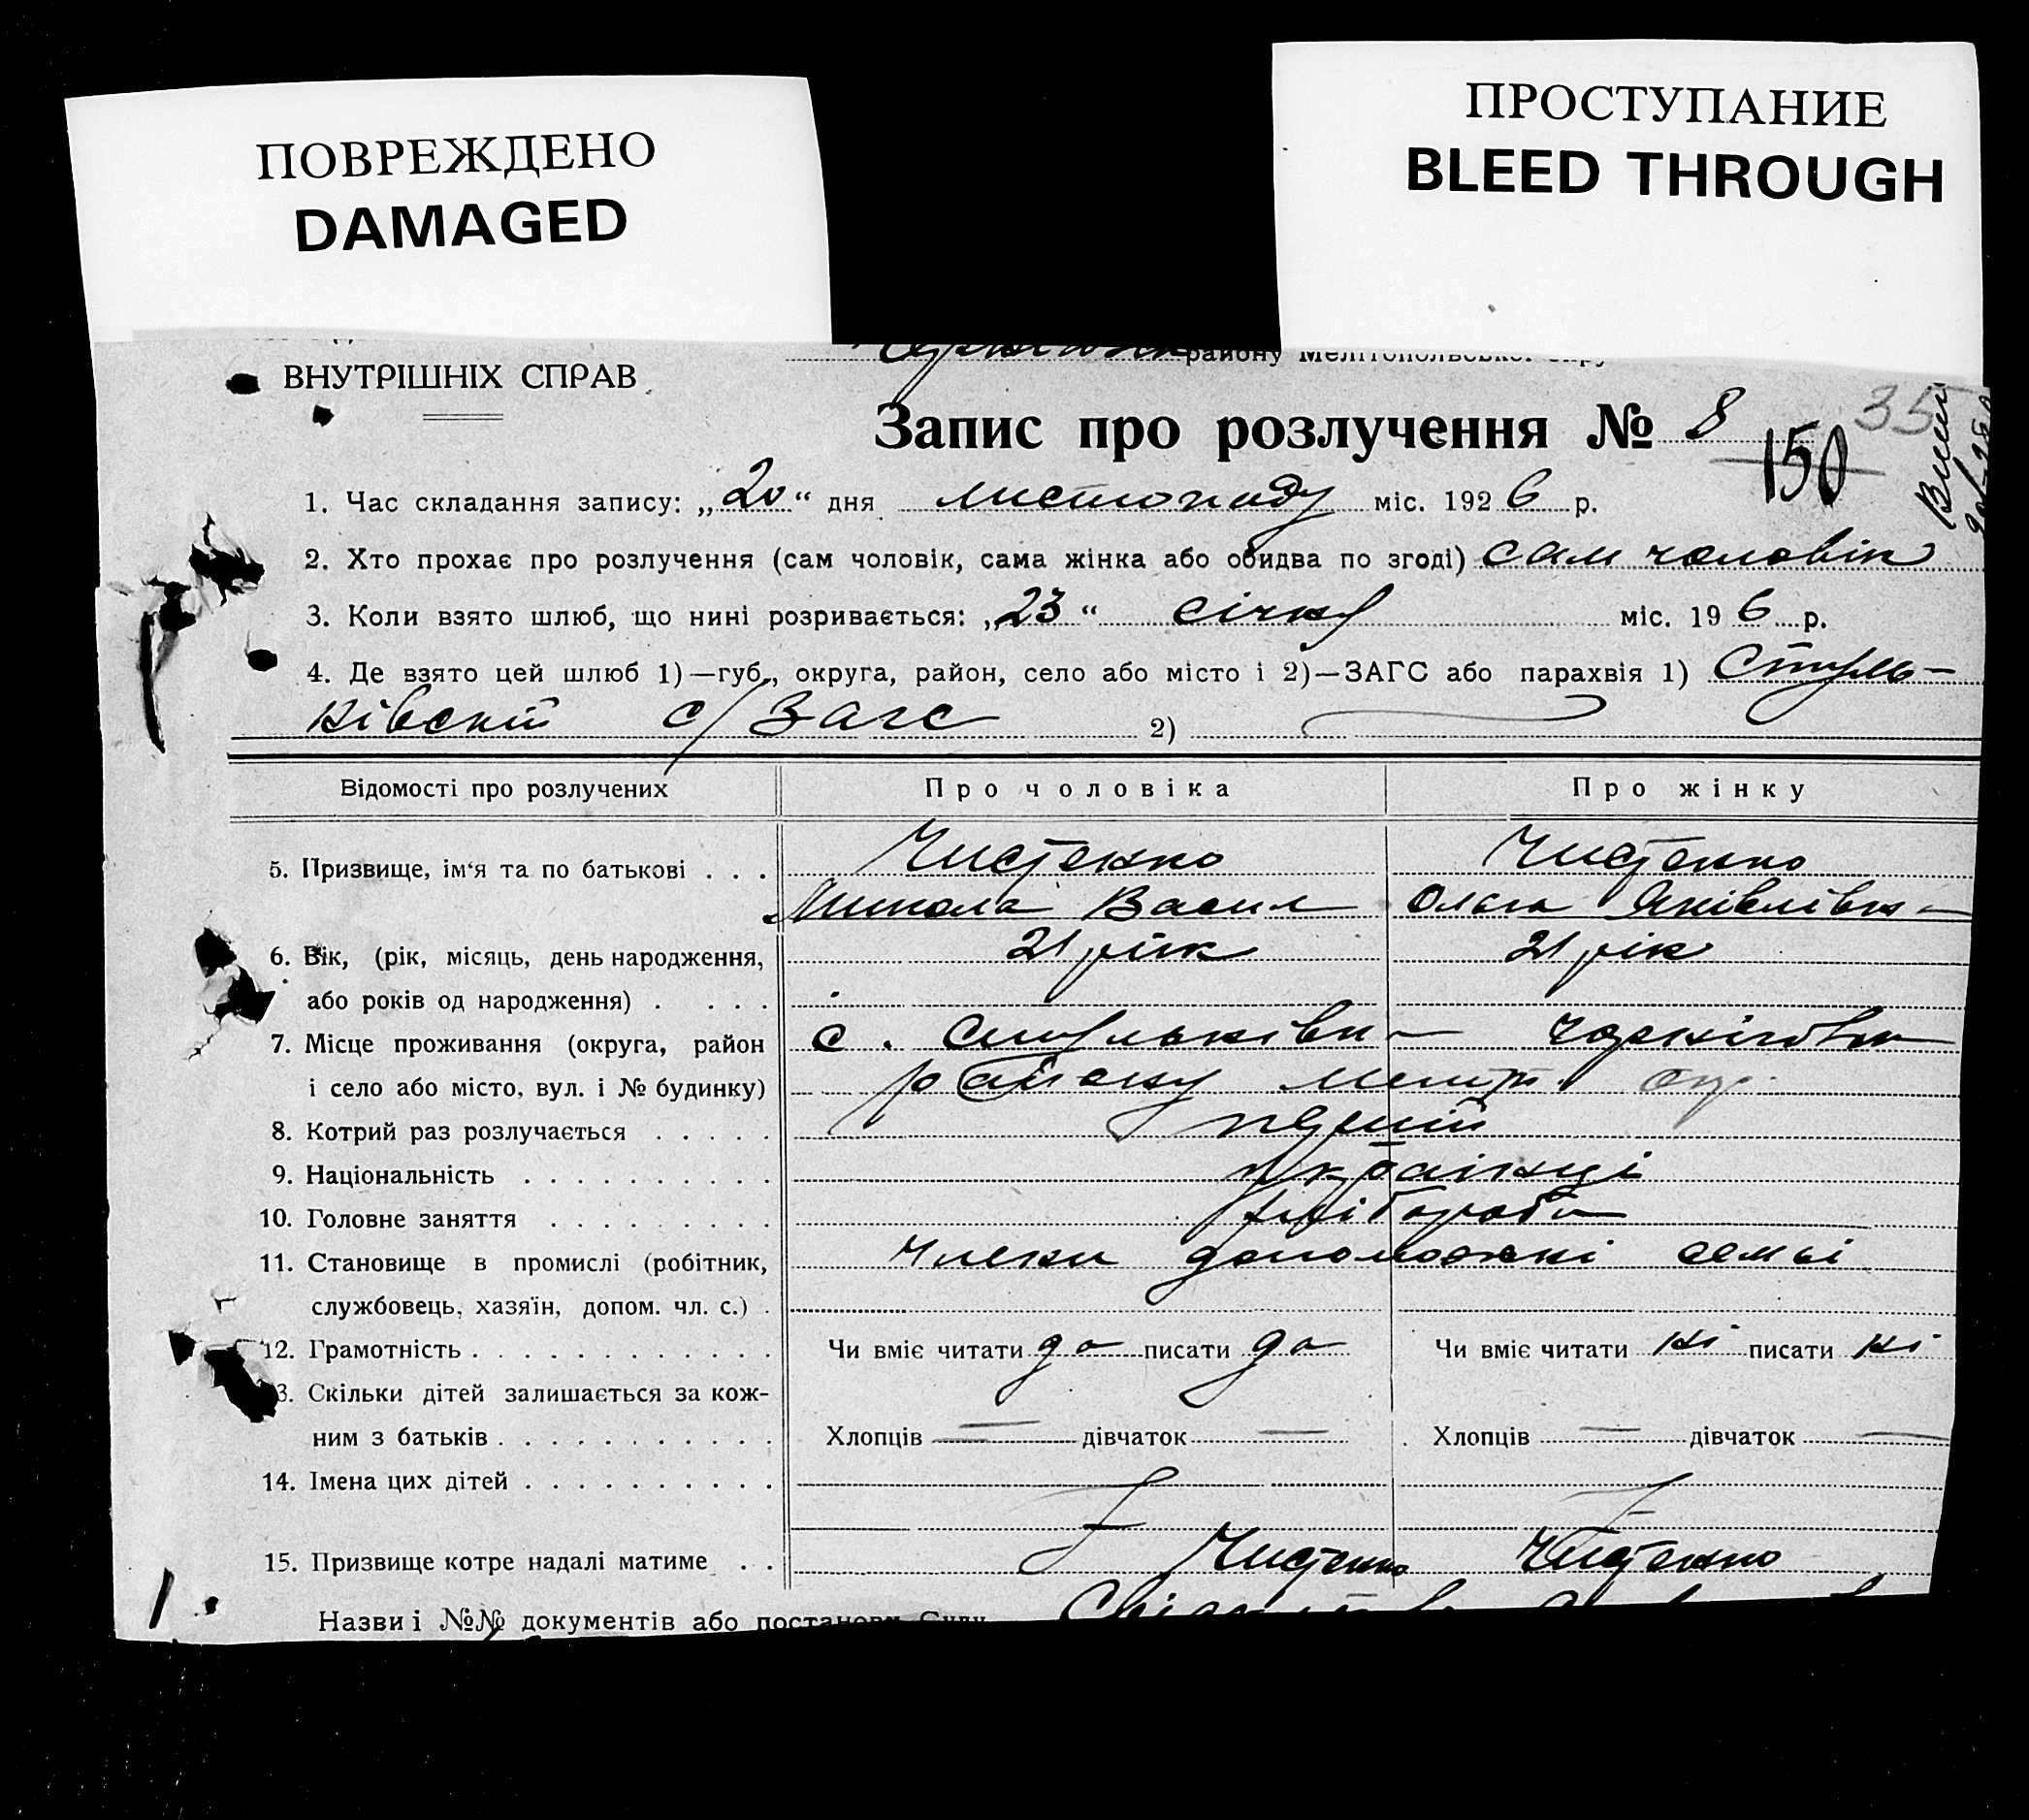 ПОВРЕЖДЕНО
DAMAGED
ПРОСТУПАНИЕ
BLEED THROUGH
району Мелітопольської окру
ВНУТРІШНІХ СПРАВ
35
Запис про розлучення № 8
150
1. Час складання запису: „20“ дня листопаду міс. 1926 р.
2. Хто прохає про розлучення (сам чоловік, сама жінка або обидва по згоді) сам чоловік
3. Коли взято шлюб, що нині розривається: „23“ січня міс. 19 6 р.
4. Де взято цей шлюб 1)—губ., округа, район, село або місто і 2)—ЗАГС або парахвія 1) Стуль-
ківській с/Загс 2)
Відомості про розлучених Про чоловіка Про жінку
5. Призвище, ім‘я та по батькові . . . Чистенко Чистенко
Микола Васил Ольга Яківлівна
6. Вік, (рік, місяць, день народження, 21 рік 21 рік
або років од народження) . . . .
7. Місце проживання (округа, район с. Стульківка
і село або місто, вул. і № будинку) району Меліт. окр.
8. Котрий раз розлучається . . . . . перший
9. Національність . . . . . . . . . . українці
10. Головне заняття . . . . . . . . . хліборобі
11. Становище в промислі (робітник, Члени допоможні семьі
службовець, хазяїн, допом. чл. с.) .
12. Грамотність . . . . . . . . . . . . Чи вміє читати да писати да Чи вміє читати ні писати ні
3. Скільки дітей залишається за кож-
ним з батьків . . . . . . . . . . . Хлопців — дівчаток — Хлопців — дівчаток —
14. Імена цих дітей . . . . . . . . . .
15. Призвище котре надалі матиме . . Чистенко Чистенко
Назви і №№ документів або постанови Суду